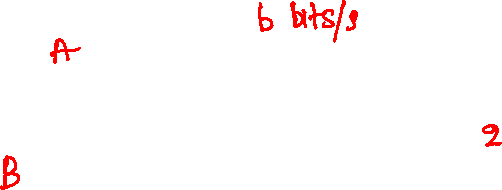 b bits/s
A
2
B